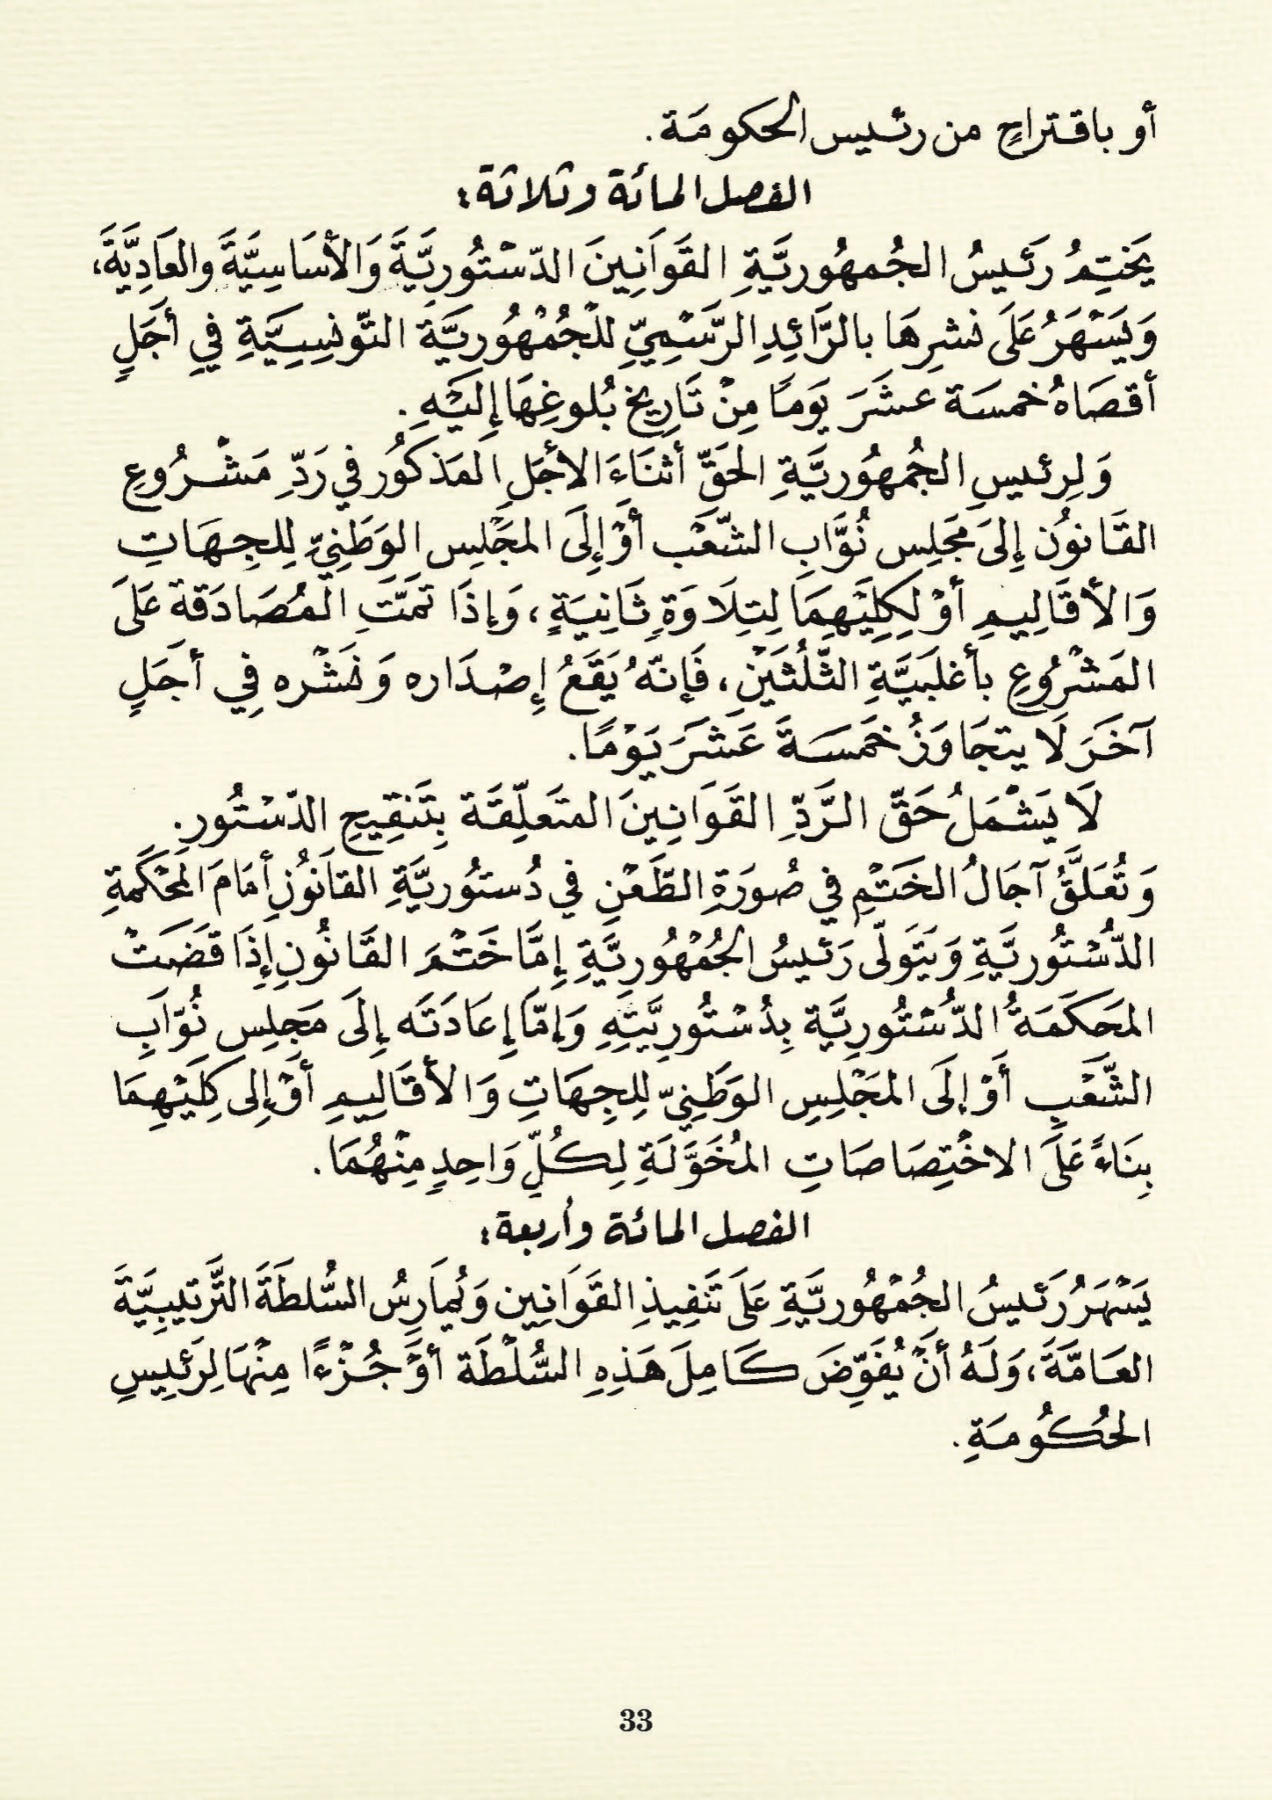 أو باقتراحٍ من رئيس الحكومَة.
الفصل المائة وثلاثة:
يَختِمُ رَئيسُ الجُمهُوريَّةِ القَوَانِينَ الدّسْتُوريَّةَ وَالأسَاسِيَّةَ والعَادِيَّةَ،
وَيَسْهَرُ عَلَى نشرِهَا بالرَّائِدِ الرَّسْمِيِّ للْجُمْهُوريَّةِ التّونسِيَّةِ فِي أجَلٍ
أقصَاهُ خمسَة عشَرَ يَومًا مِنْ تَارِيخ بُلوغِهَا إِلَيْهِ.
وَلِرئيسِ الجُمهُوريَّةِ الحَقّ أثنَاءَ الأجَلِ المَذكُور في رَدِّ مَشْرُوعِ
القَانُون إِلىَ مَجَلِس نُوَّابِ الشّعْب أوْ إِلَى المجَلِس الوَطَنِيّ لِلجِهَاتِ
وَالأقَالِيمِ أوْ لِكِلِيْهِمَا لِتِلَاوَةٍ ثَانِيَةٍ، وَإِذَا تَمَّتِ المُصَادَقة عَلَى
المَشْرُوعِ بأغلَبيَّةِ الثّلُثَيْنِ، فَإنّهُ يَقَعُ إِصْدَاره وَنَشْره فِي أجَلٍ
آخَرَ لَا يتجَاوَزُ خَمسَةَ عَشَرَ يَوْمًا.
لَا يَشْمَلُ حَقّ الرَّدِّ القَوَانِينَ المتَعَلِّقَة بِتَنقِيحِ الدّسْتُورِ.
وَتُعَلَّقُ آجَالُ الخَتْمِ في صُورَةِ الطّعْنِ في دُستوُريَّةِ القاَنوُنِ أمَامَ المَحْكَمةِ
الدُّسْتُوريَّةِ وَيَتَوَلّى رَئيسُ الجُمْهُوريَّةِ إِمَّا خَتْمَ القَانُونِ إِذَا قَضَتْ
المَحَكَمَةُ الدُّسْتُوريَّة بِدُسْتُورِيَّتِهِ وَإِمّا إِعَادَتَه إِلَى مَجَلِس نُوّابِ
الشَّعْبِ أَوْ إلَى المَجْلِسِ الوَطَنِيّ لِلجِهَاتِ وَالأقَالِيمِ أوْ إلى كِلَيْهِمَا
بِنَاءً عَلَى الاخْتِصَاصَاتِ المُخَوَّلَةِ لِكُلِّ وَاحِدٍ مِنْهُمَا.
الفصل المائة وأربعة:
يَسْهَرُ رَئيسُ الجُمْهُوريَّةِ عَلَى تَنفِيذِ القَوَانِين وَيُمَارِسُ السُّلطَةَ التَّرتِيبِيَّةَ
العَامَّةَ، وَلَهُ أنْ يُفَوِّضَ كَامِلَ هَذِهِ السُّلْطَة أوْ جُزْءًا مِنْهَا لِرَئِيسِ
الحُكُومَةِ.
33